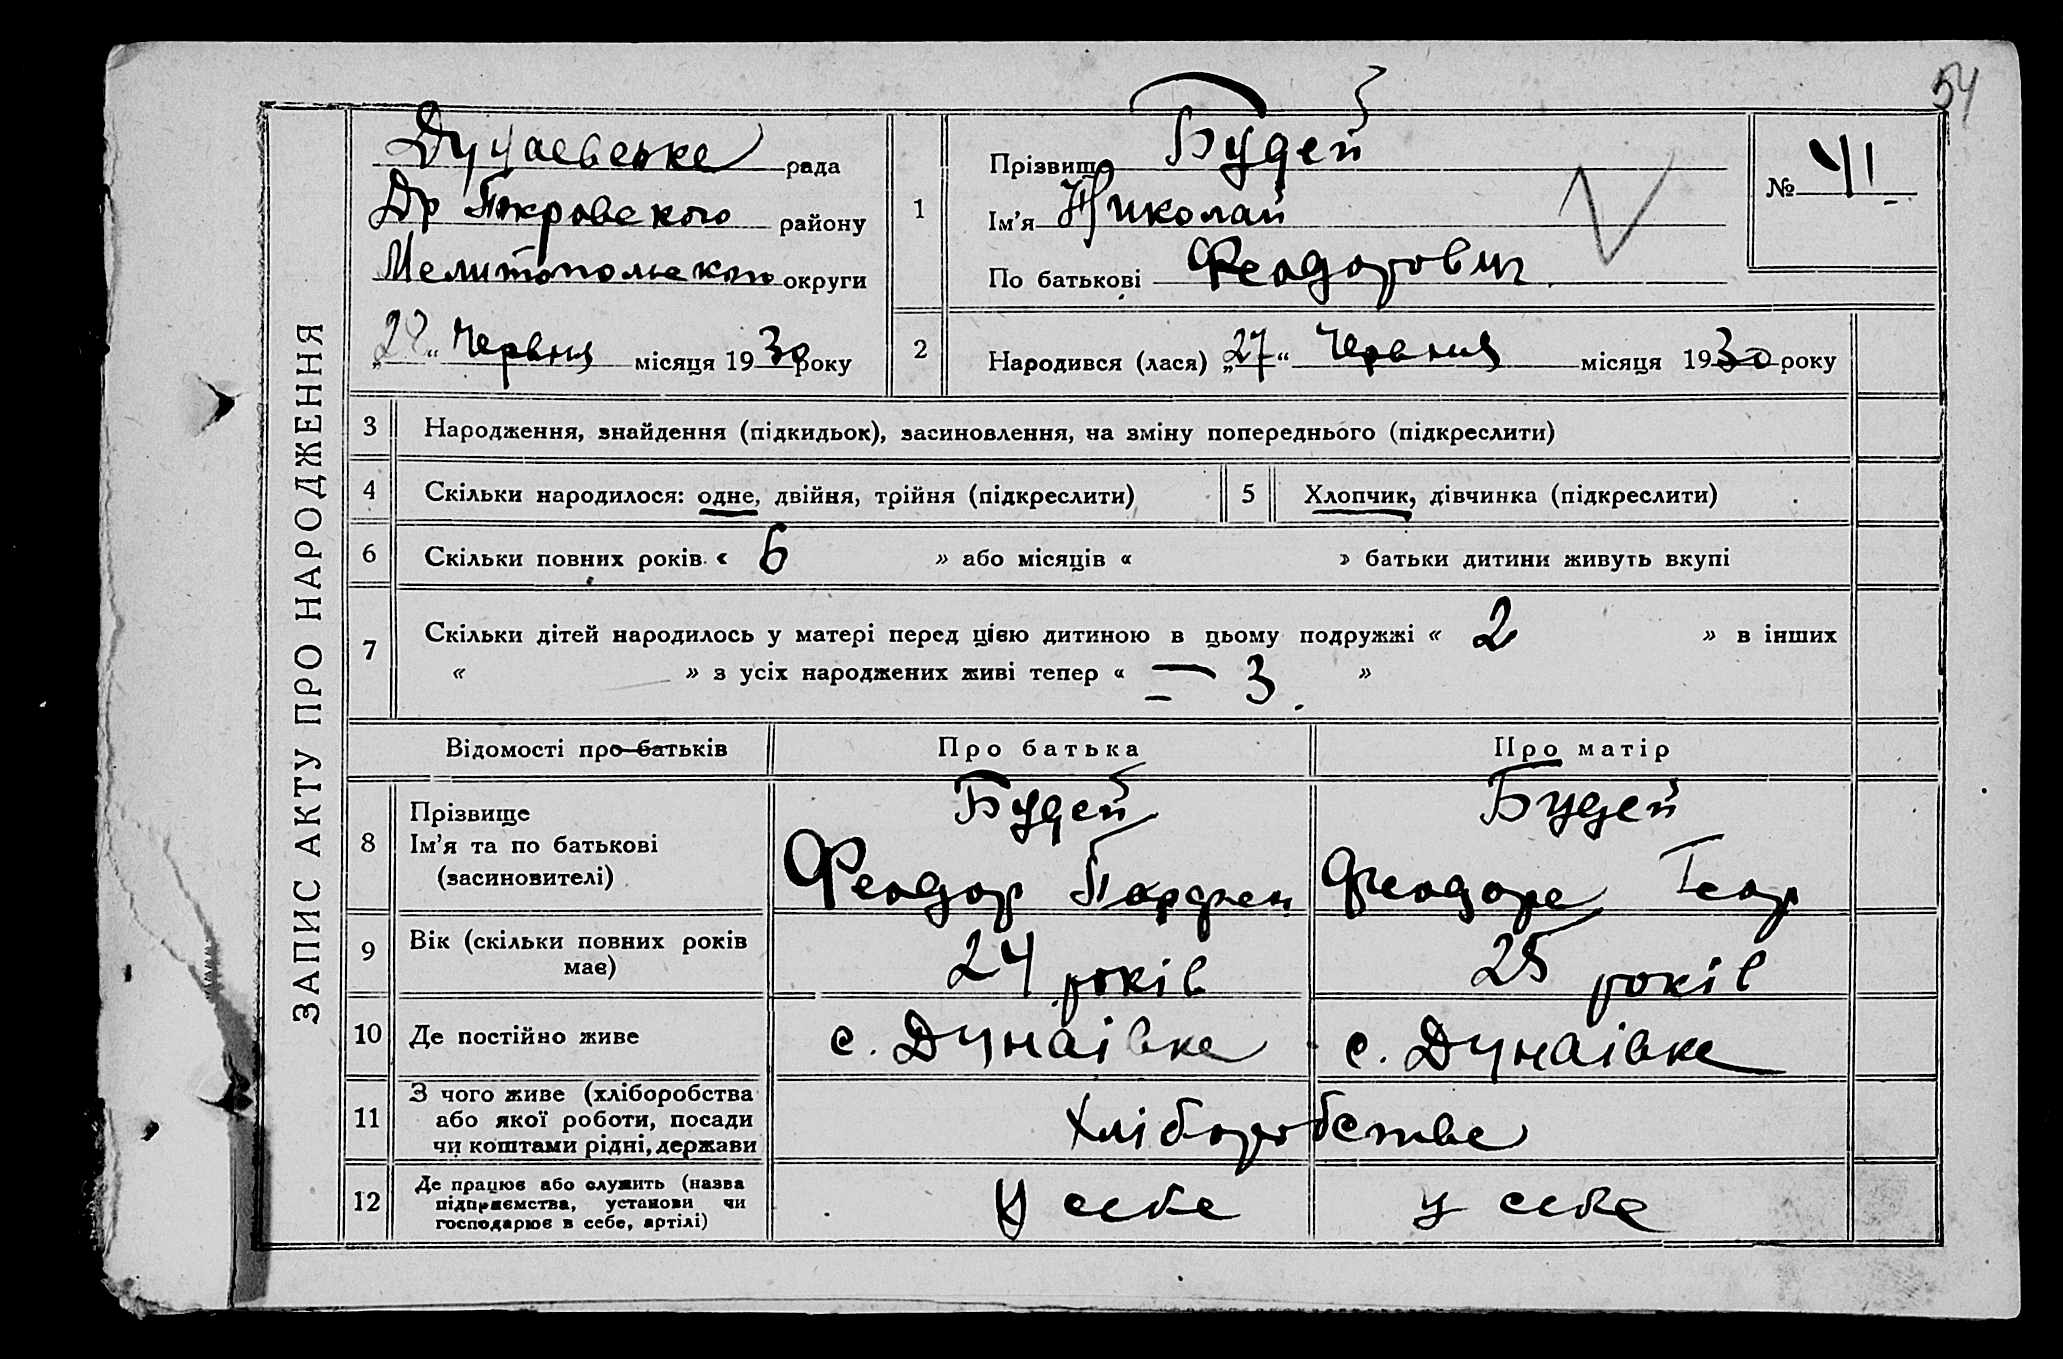 54
ЗАПИС АКТУ ПРО НАРОДЖЕННЯ
Дунаевське рада
Др Покровского району
Мелитопольского округи
„28“ Червня місяця 1930 року
1
Прізвище Будей
Ім'я Николай
По батькові Феодорович
№ 41
2
Народився (лася) „27“ Червня місяця 1930 року
3 Народження, знайдення (підкидьок), засиновлення, на зміну попереднього (підкреслити)
4 Скільки народилося: одне, двійня, трійня (підкреслити)
5 Хлопчик, дівчинка (підкреслити)
6 Скільки повних років « 6 » або місяців « » батьки дитини живуть вкупі
7 Скільки дітей народилось у матері перед цією дитиною в цьому подружжі « 2 » в інших
« » з усіх народжених живі тепер « — 3 »
Відомості про батьків
Про батька
Про матір
8 Прізвище
Ім'я та по батькові
(засиновителі)
Будей
Феодор Парфен
Будей
Феодора Геор
9 Вік (скільки повних років
має)
24 років
25 років
10 Де постійно живе
с. Дунаівка
с. Дунаівка
11 З чого живе (хліборобства
або якої роботи, посади
чи коштами рідні, держави
Хліборобства
12 Де працює або служить (назва
підприємства, установи чи
господарює в себе, артілі)
У себе
у себе